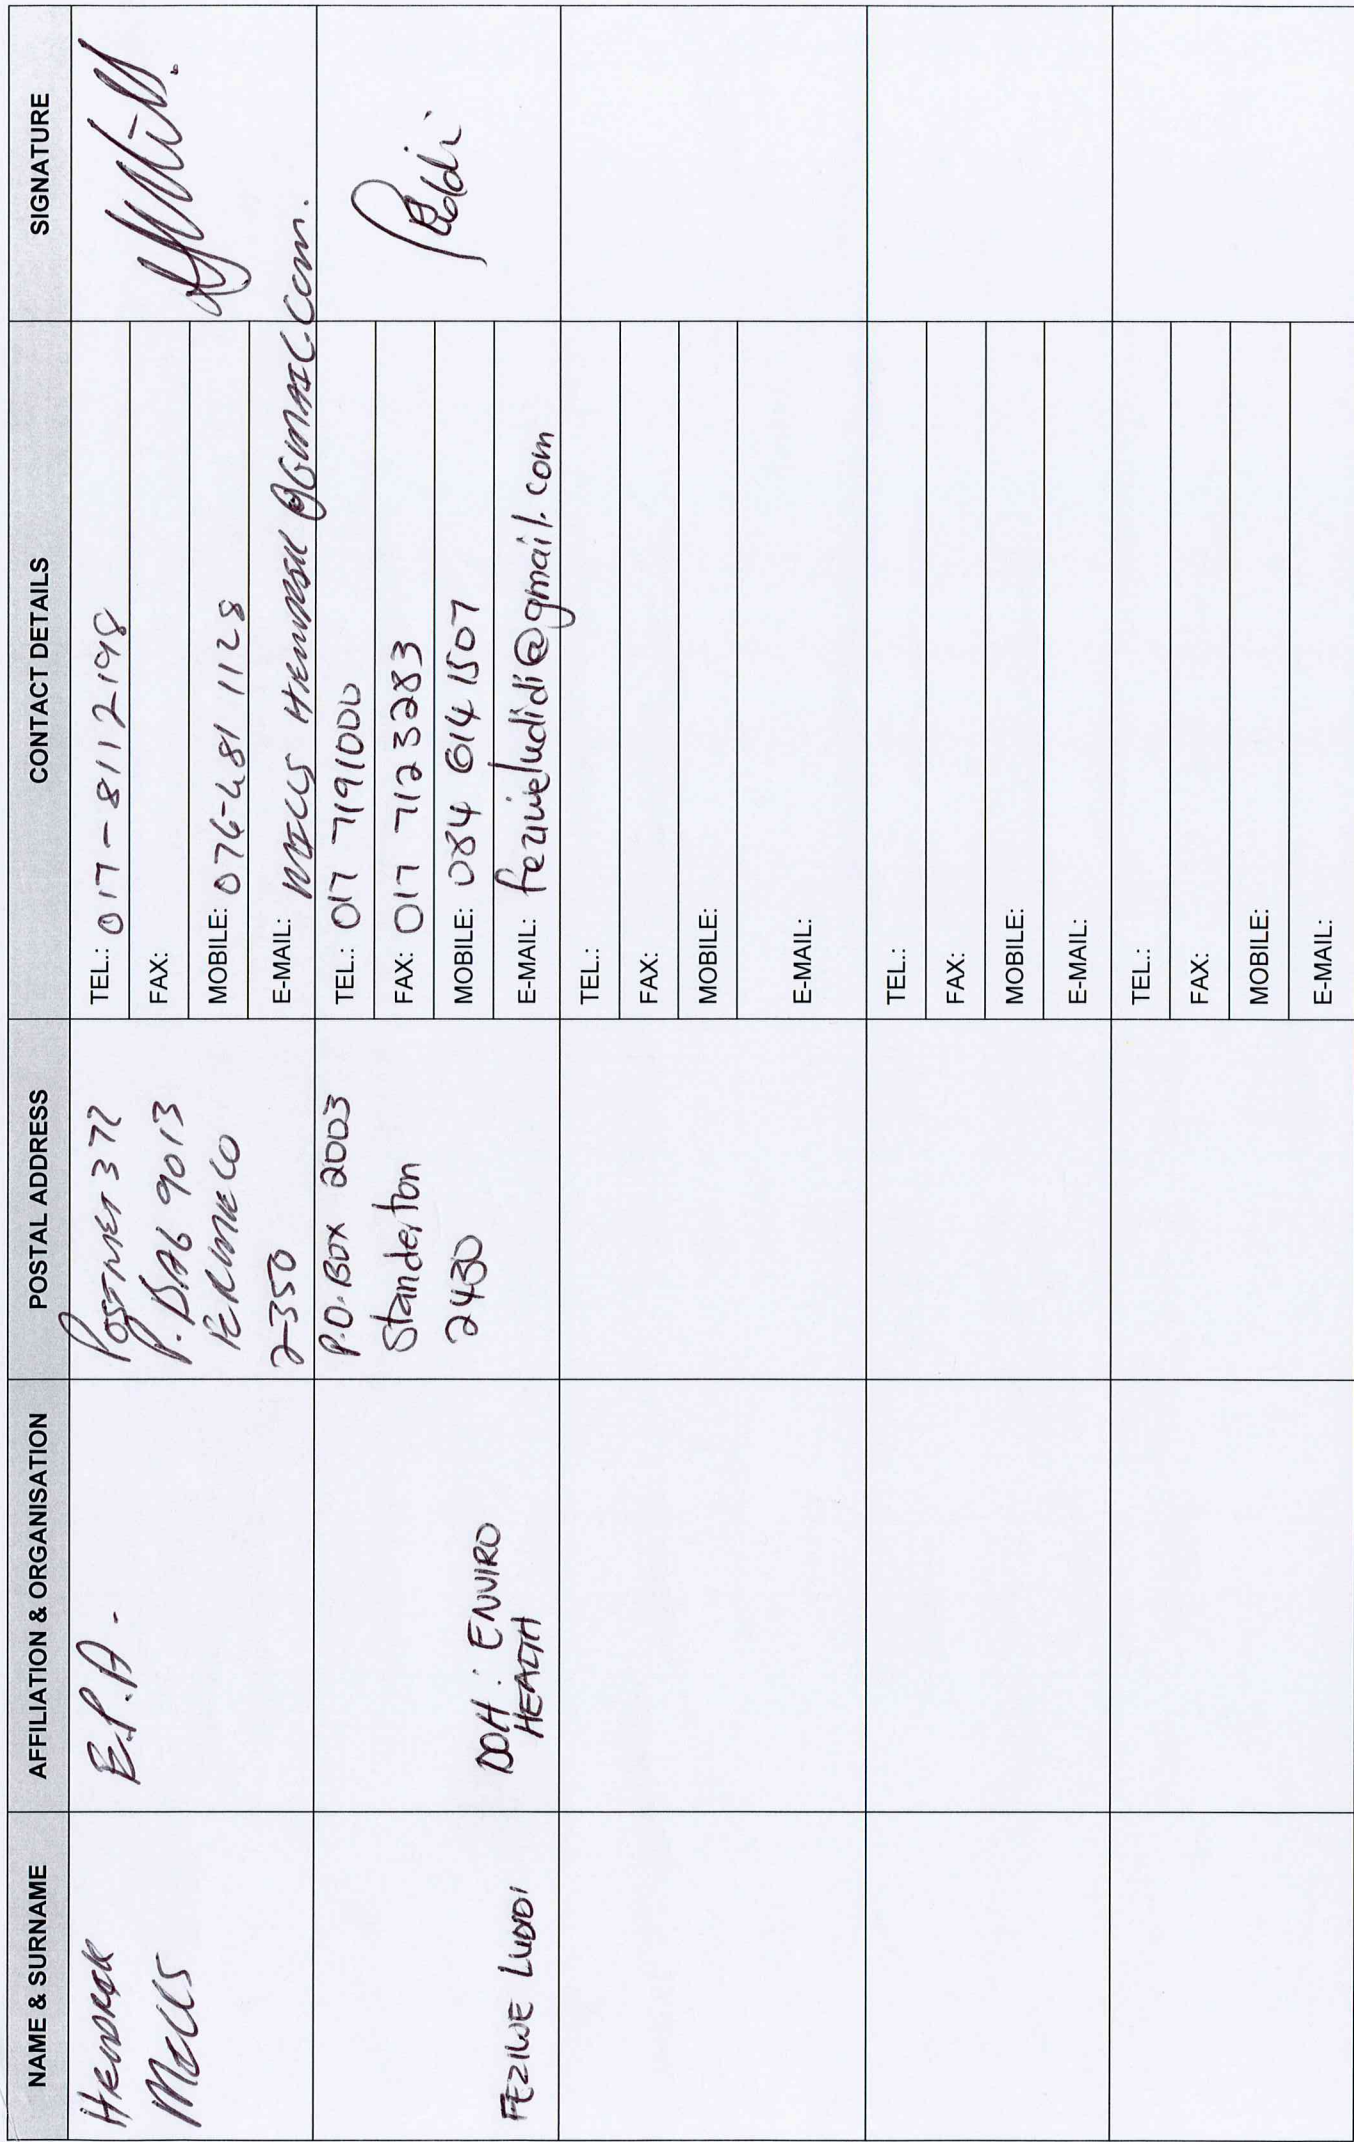 NAME & SURNAME
AFFILIATION & ORGANISATION
POSTAL ADDRESS
CONTACT DETAILS
SIGNATURE
HENDRIK
MILLS
E.P.A.
POSTNET 372
P. BAG 9013
ERMELO
2350
TEL.: 017-8112198
FAX:
MOBILE: 076-481 1128
E-MAIL: MILLS HENDRIK@GMAIL.COM.
FEZIWE LUDIDI
DOH: ENVIRO
HEALTH
P.O. BOX 2003
Standerton
2430
TEL.: 017 7191000
FAX: 017 712 3283
MOBILE: 084 614 1507
E-MAIL: feziweludidi@gmail.com
TEL.:
FAX:
MOBILE:
E-MAIL:
TEL.:
FAX:
MOBILE:
E-MAIL:
TEL.:
FAX:
MOBILE:
E-MAIL: